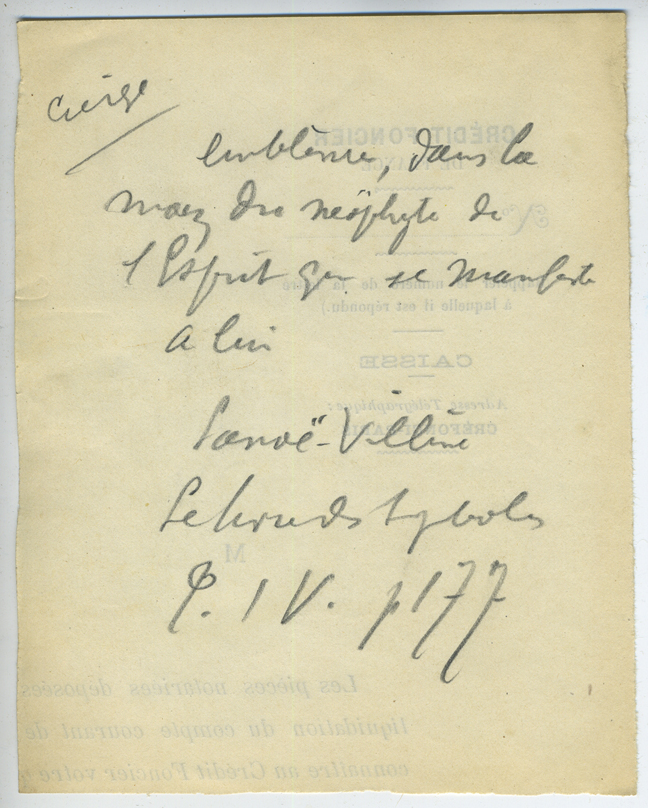 Cierge
emblème, dans la
main du néophyte de
l'Esprit qui se manifeste
a lui
Lanoë-Villène
Le livre des symboles
T. IV. p 177
CRÉDIT FONCIER
DE FRANCE
N°
à laquelle il est répondu.)
CAISSE
Adresse Télégraphique:
M
Les pièces notariées déposées
liquidation du compte courant de
connaître au Crédit Foncier votre